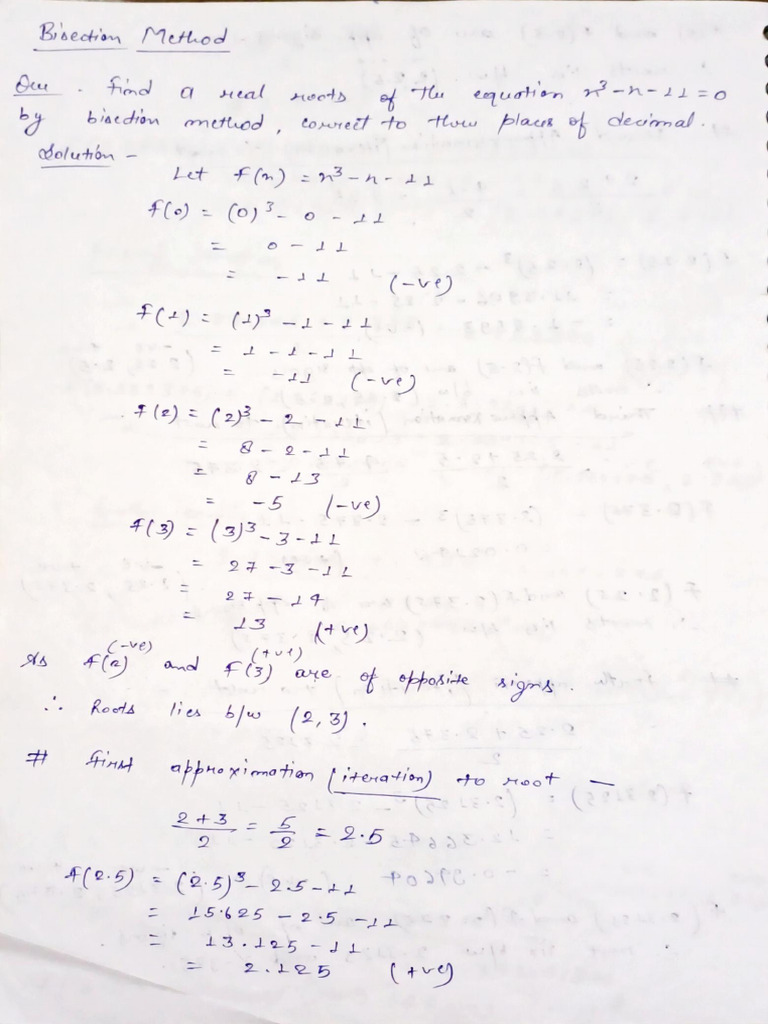 Bisection Method
Que. Find a real roots of the equation x³-x-11=0
by bisection method, correct to three places of decimal.
Solution -
Let f(x) = x³-x-11
f(0) = (0)³- 0 - 11
= 0 - 11
= -11 (-ve)
f(1) = (1)³ -1 - 11
= 1 - 1 - 11
= -11 (-ve)
f(2) = (2)³- 2 - 11
= 8 - 2 - 11
= 8 - 13
= -5 (-ve)
f(3) = (3)³-3-11
= 27 -3 -11
= 27 - 14
= 13 (+ve)
(-ve) (+ve)
As f(2) and f(3) are of opposite signs.
∴ Roots lies b/w (2,3).
# First approximation (iteration) to root -
2+3/2 = 5/2 = 2.5
f(2.5) = (2.5)³- 2.5-11
= 15.625 - 2.5 -11
= 13.125 - 11
= 2.125 (+ve)